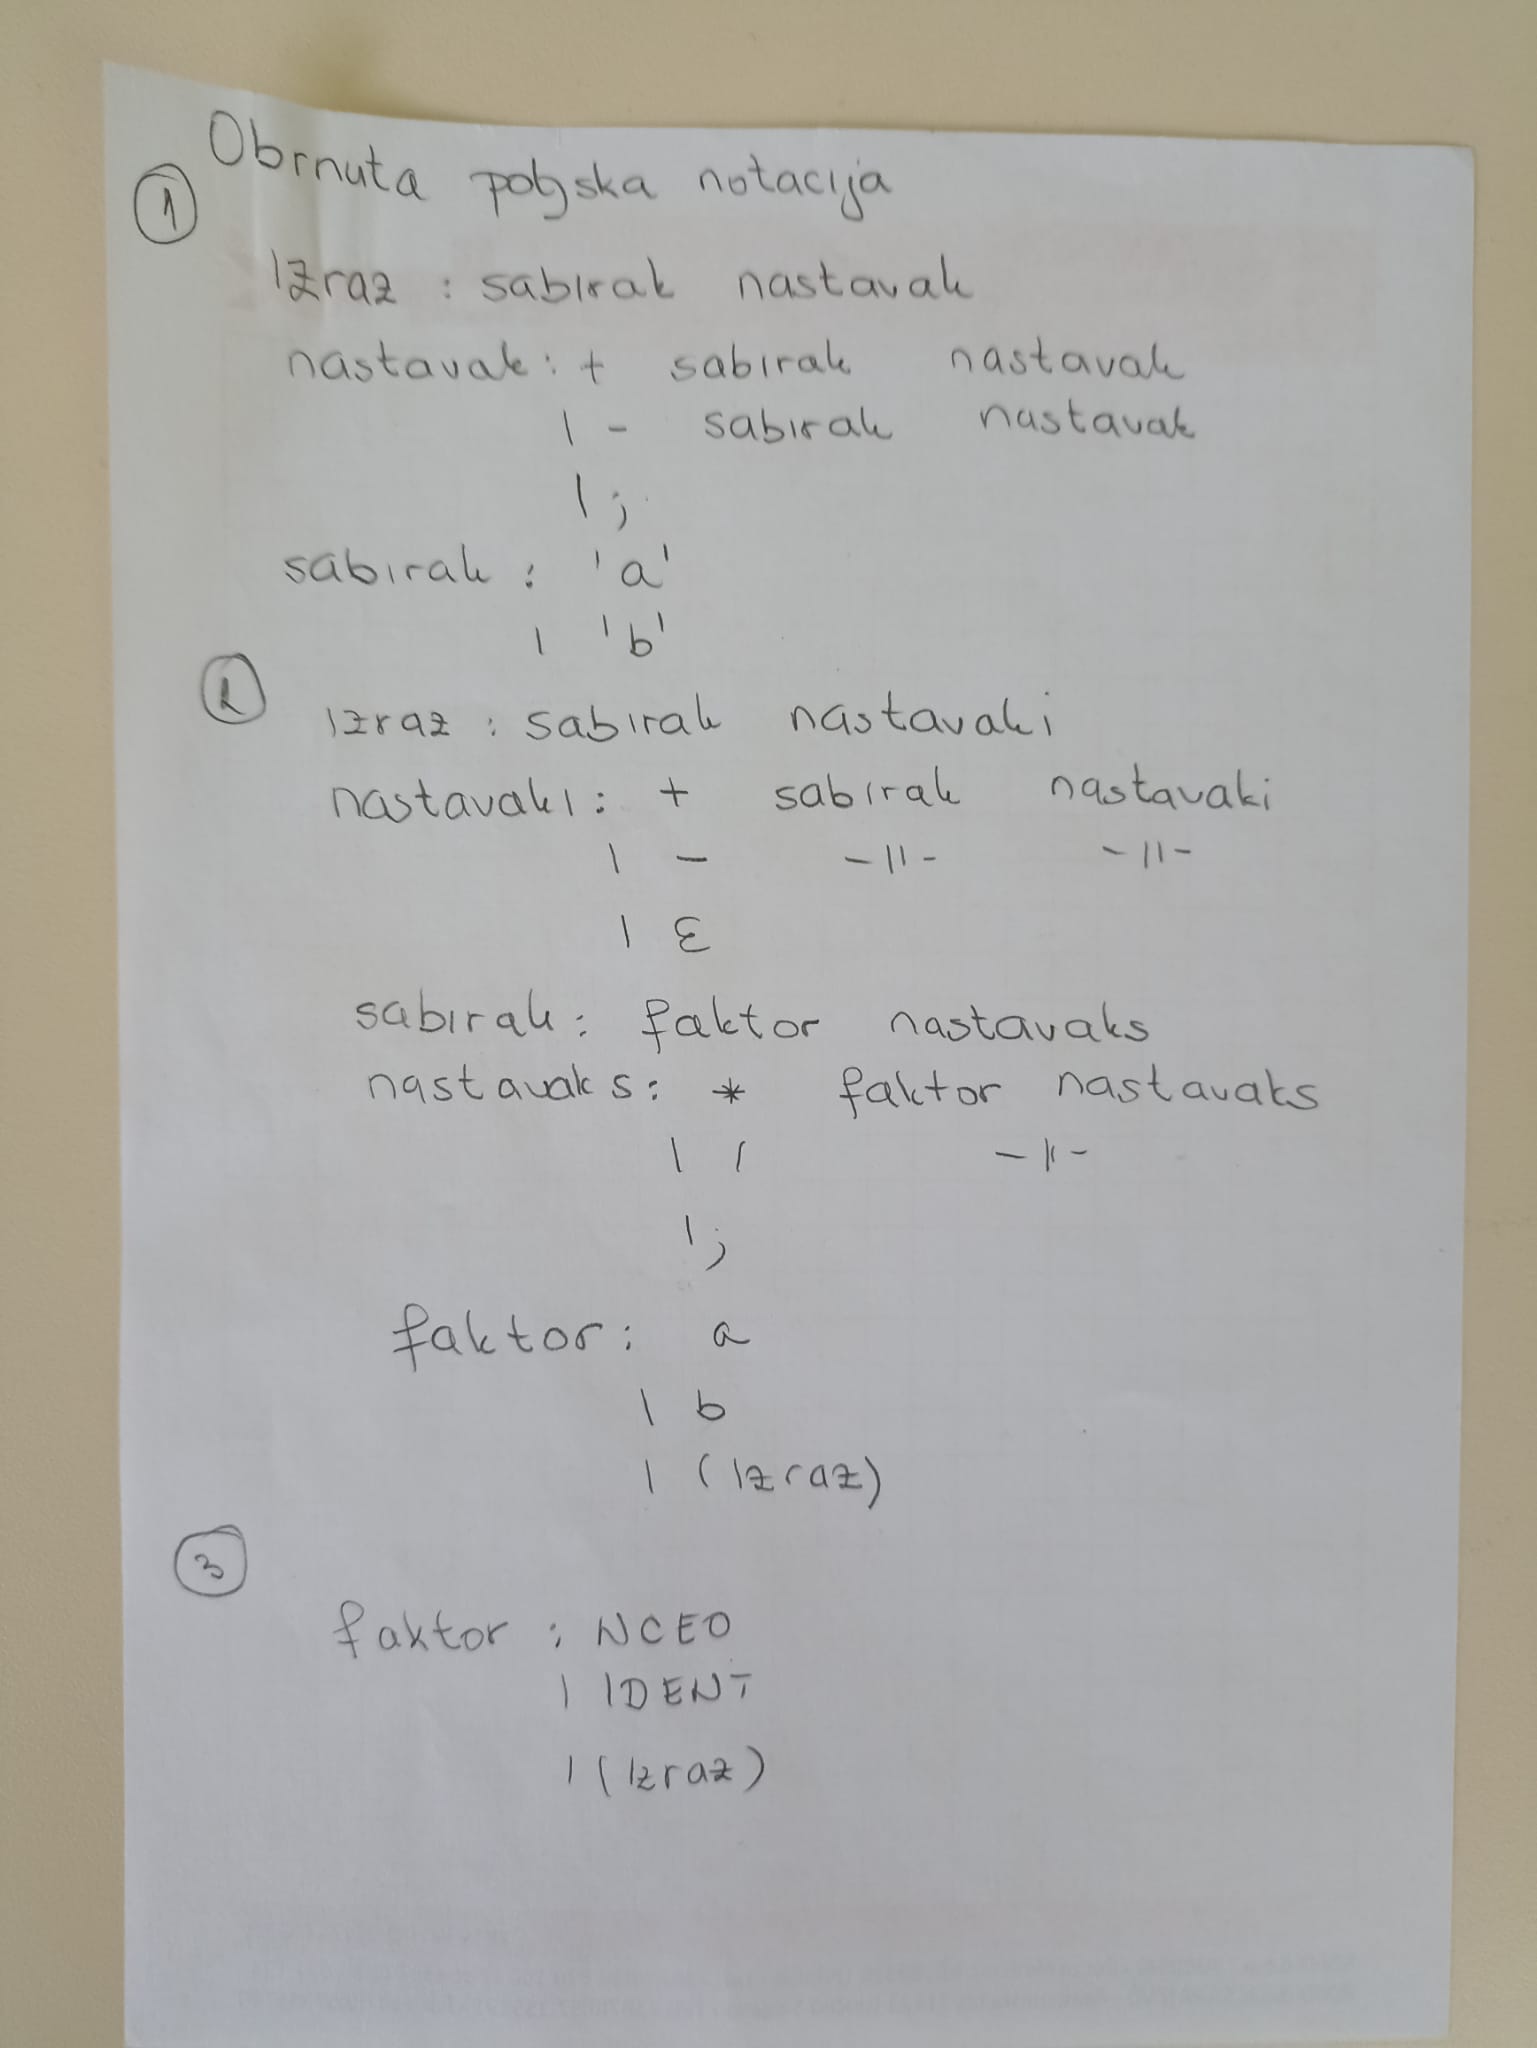 Obrnuta poljska notacija
1
Izraz : sabirak nastavak
nastavak : + sabirak nastavak
| - sabirak nastavak
| ;
sabirak : 'a'
| 'b'
2
izraz : sabirak nastavaki
nastavaki : + sabirak nastavaki
| - -||- -||-
| ε
sabirak : faktor nastavaks
nastavaks : * faktor nastavaks
| / -||-
| ;
faktor : a
| b
| (Izraz)
3
faktor : NCEO
| IDENT
| (Izraz)